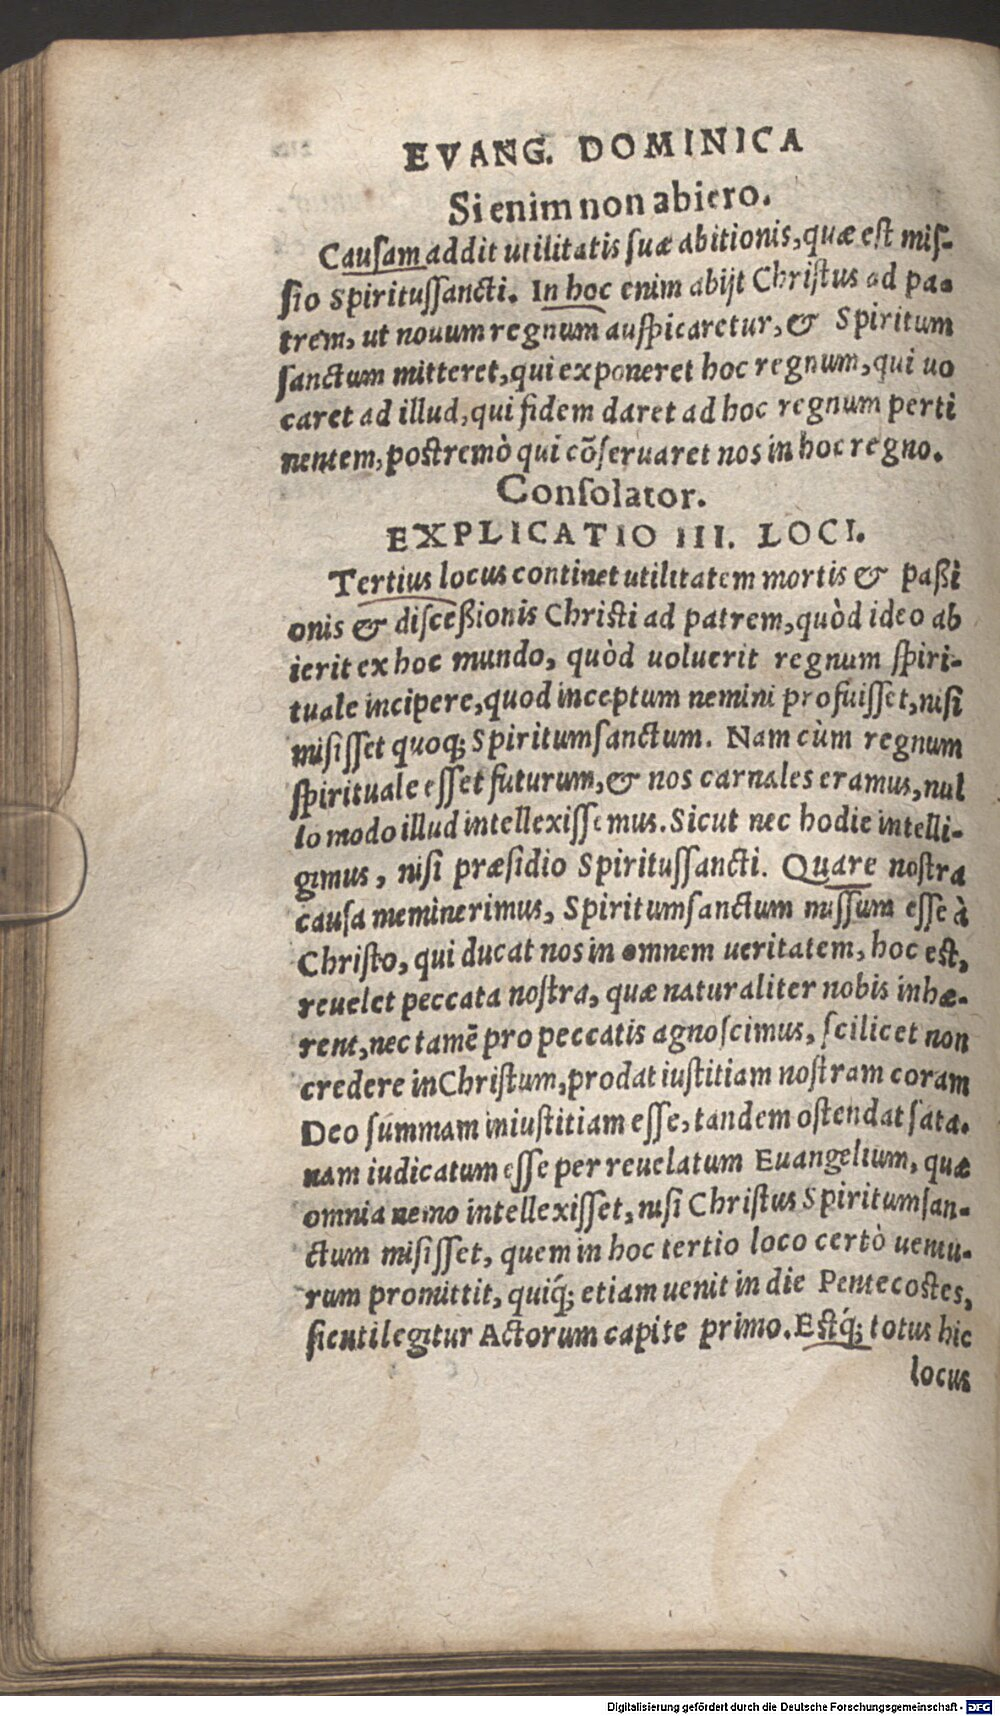 EVANG. DOMINICA
Si enim non abiero.
Cauſam addit utilitatis ſuæ abitionis, quæ eſt miſ-
ſio Spiritusſancti. In hoc enim abijt Chriſtus ad pa-
trem, ut nouum regnum auſpicaretur, & Spiritum
ſanctum mitteret, qui exponeret hoc regnum, qui uo
caret ad illud, qui fidem daret ad hoc regnum perti
nentem, poſtremò qui cōſeruaret nos in hoc regno.
Conſolator.
EXPLICATIO III. LOCI.
Tertius locus continet utilitatem mortis & paßi
onis & diſceßionis Chriſti ad patrem, quòd ideo ab
ierit ex hoc mundo, quòd uoluerit regnum ſpiri-
tuale incipere, quod inceptum nemini profuiſſet, niſi
miſiſſet quoq; Spiritumſanctum. Nam cùm regnum
ſpirituale eſſet futurum, & nos carnales eramus, nul
lo modo illud intellexiſſemus. Sicut nec hodie intelli-
gimus, niſi præſidio Spiritusſancti. Quare noſtra
cauſa meminerimus, Spiritumſanctum miſſum eſſe à
Chriſto, qui ducat nos in omnem ueritatem, hoc eſt,
reuelet peccata noſtra, quæ naturaliter nobis inhæ-
rent, nec tamē pro peccatis agnoſcimus, ſcilicet non
credere in Chriſtum, prodat iuſtitiam noſtram coram
Deo ſummam iniuſtitiam eſſe, tandem oſtendat ſata-
nam iudicatum eſſe per reuelatum Euangelium, quæ
omnia nemo intellexiſſet, niſi Chriſtus Spiritumſan-
ctum miſiſſet, quem in hoc tertio loco certò uentu-
rum promittit, quiq́; etiam uenit in die Pentecoſtes,
ſicuti legitur Actorum capite primo. Eſtq́; totus hic
locus
Digitalisierung gefördert durch die Deutsche Forschungsgemeinschaft - DFG